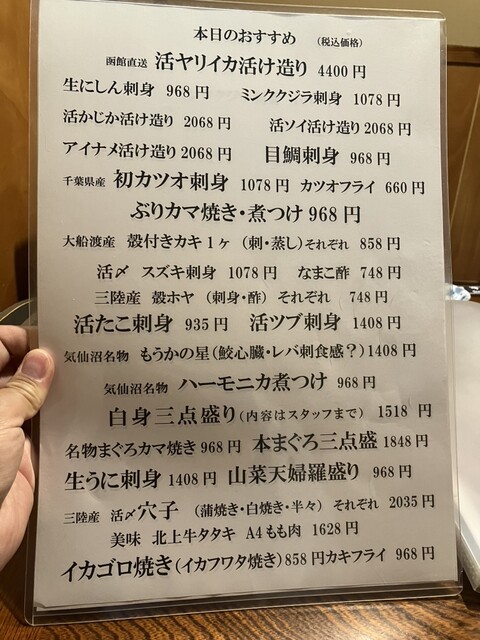 本日のおすすめ （税込価格）
函館直送 活ヤリイカ活け造り 4400円
生にしん刺身 968円 ミンククジラ刺身 1078円
活かじか活け造り 2068円 活ソイ活け造り 2068円
アイナメ活け造り 2068円 目鯛刺身 968円
千葉県産 初カツオ刺身 1078円 カツオフライ 660円
ぶりカマ焼き・煮つけ 968円
大船渡産 殻付きカキ1ヶ （刺・蒸し）それぞれ 858円
活〆 スズキ刺身 1078円 なまこ酢 748円
三陸産 殻ホヤ （刺身・酢） それぞれ 748円
活たこ刺身 935円 活ツブ刺身 1408円
気仙沼名物 もうかの星（鮫心臓・レバ刺食感？）1408円
気仙沼名物 ハーモニカ煮つけ 968円
白身三点盛り（内容はスタッフまで） 1518円
名物まぐろカマ焼き 968円 本まぐろ三点盛 1848円
生うに刺身 1408円 山菜天婦羅盛り 968円
三陸産 活〆穴子 （蒲焼き・白焼き・半々） それぞれ 2035円
美味 北上牛タタキ A4もも肉 1628円
イカゴロ焼き（イカフワタ焼き）858円カキフライ 968円